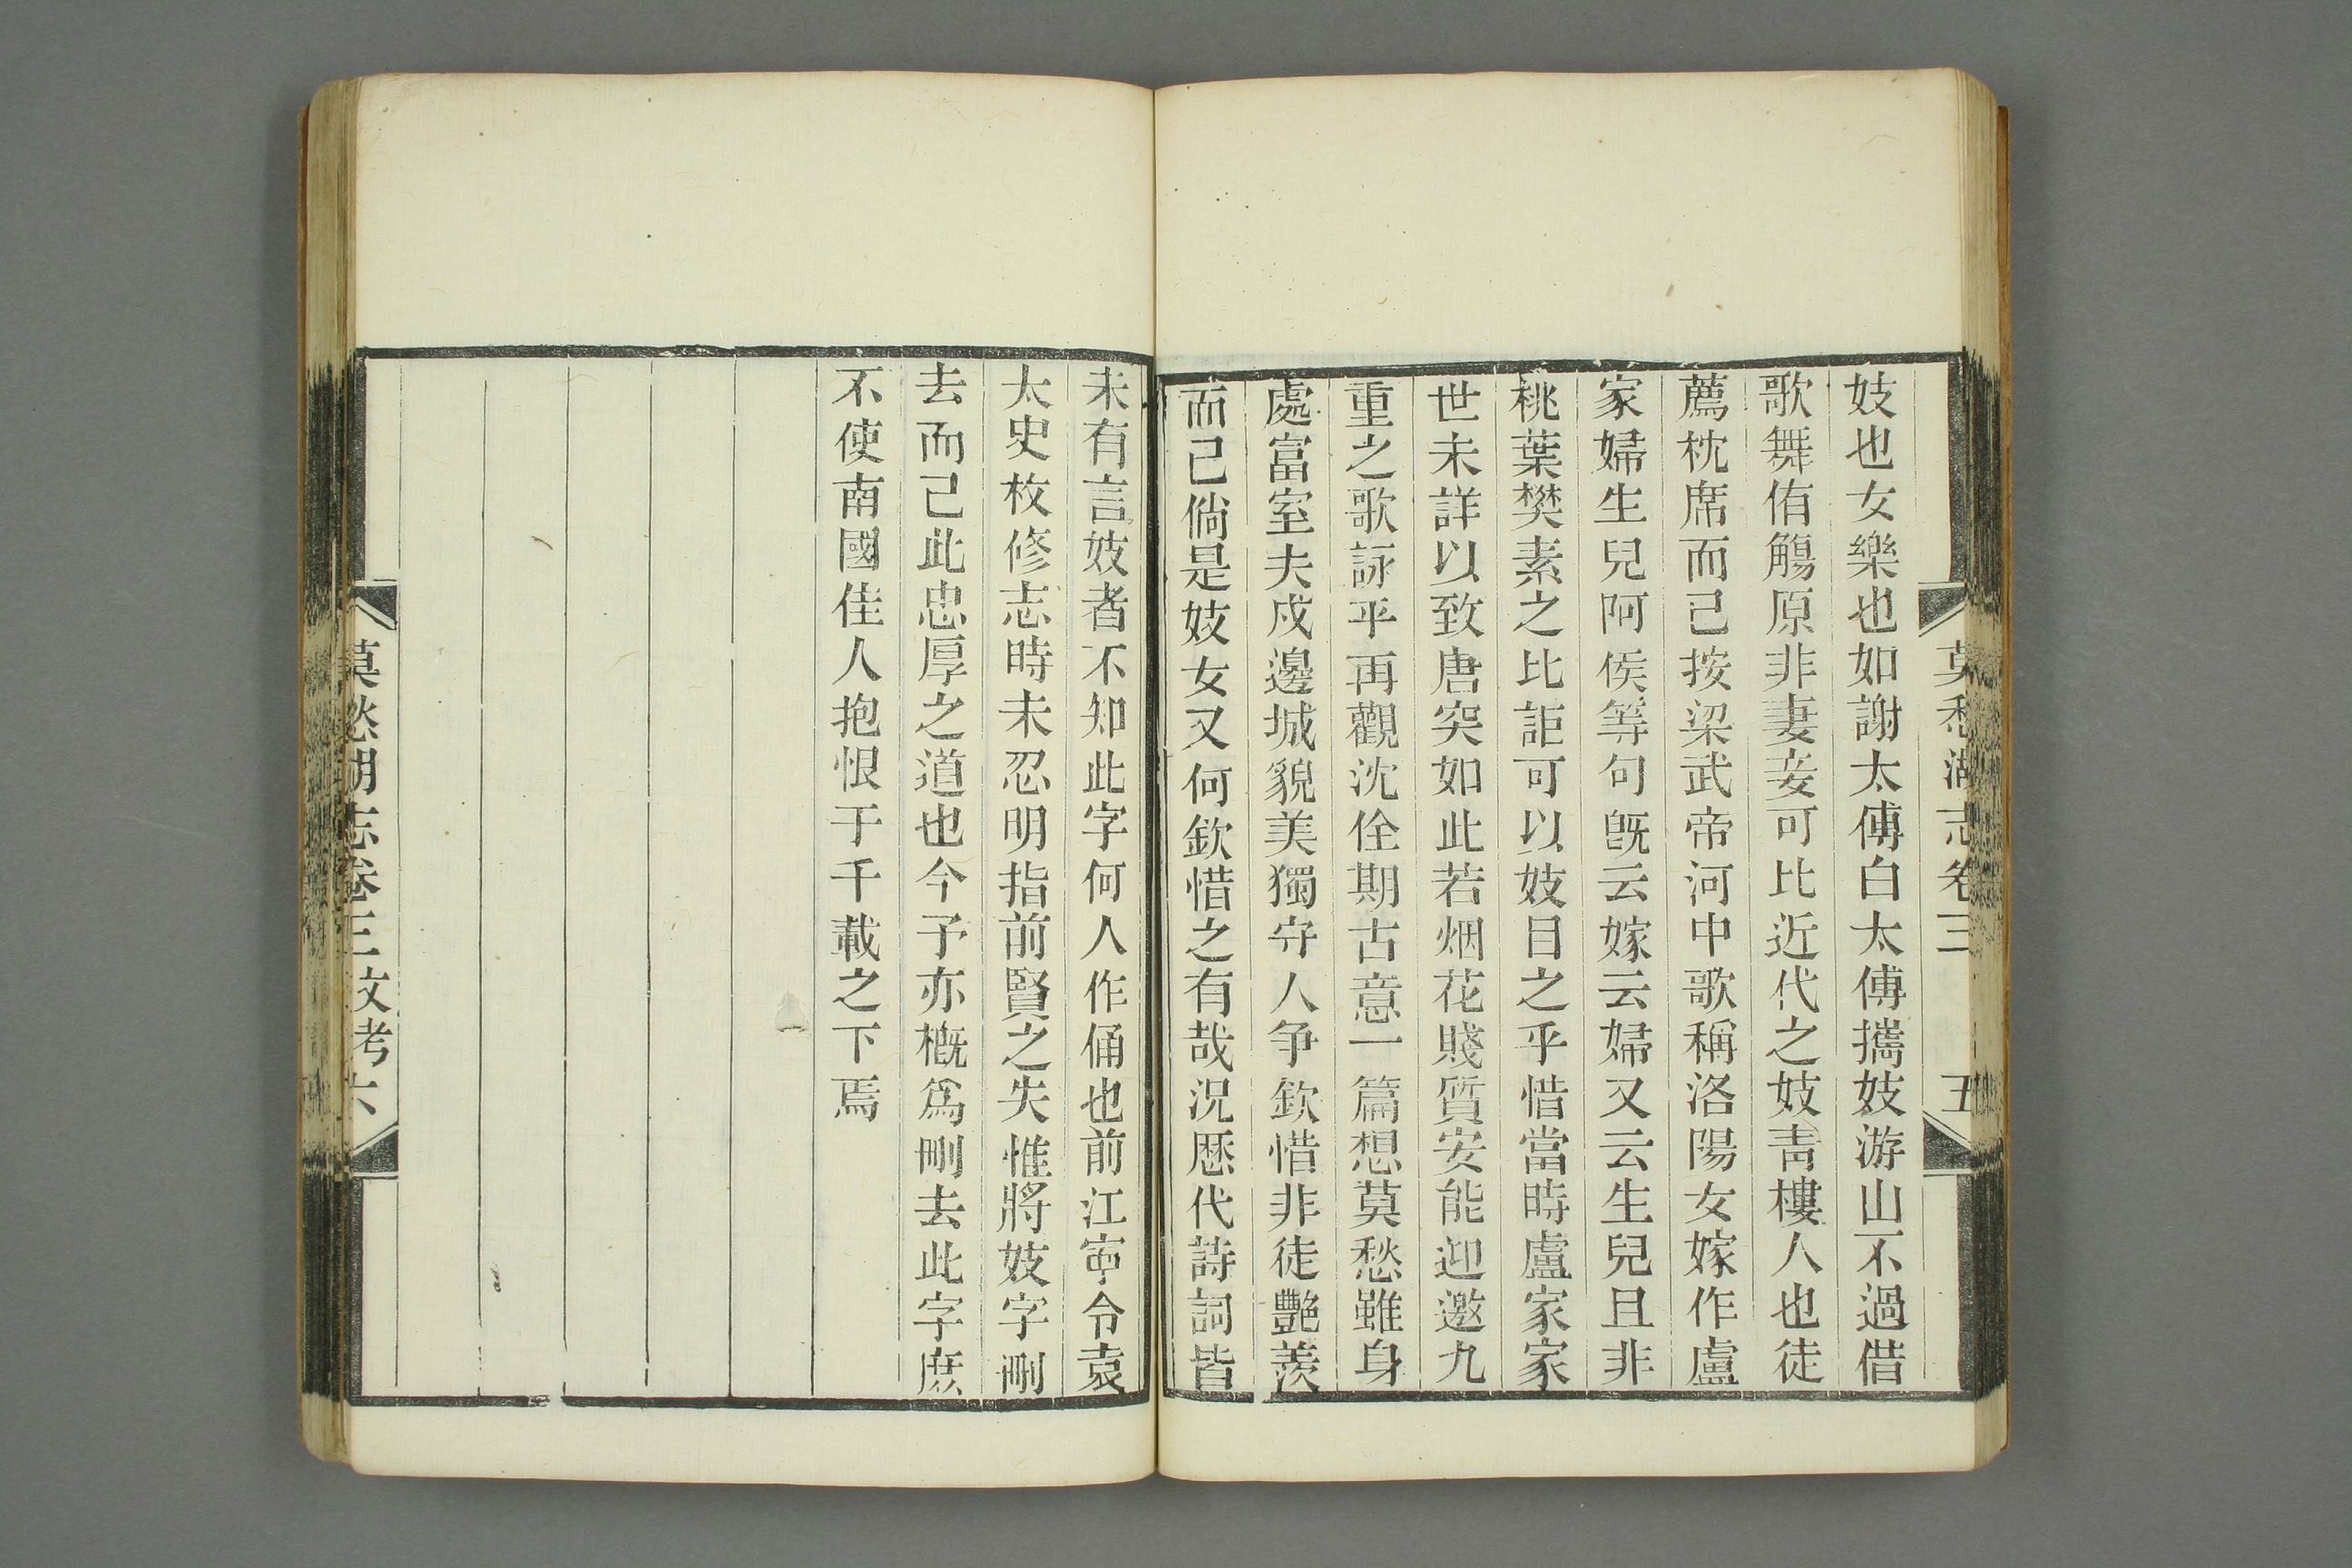 莫愁湖志卷三 五
妓也女樂也如謝太傅白太傅攜妓游山不過借
歌舞侑觴原非妻妾可比近代之妓靑樓人也徒
薦枕席而己按梁武帝河中歌稱洛陽女嫁作盧
家婦生兒阿侯等句旣云嫁云婦又云生兒且非
桃葉樊素之比詎可以妓目之乎惜當時盧家家
世未詳以致唐突如此若烟花賤質安能迎邀九
重之歌詠乎再觀沈佺期古意一篇想莫愁雖身
處富室夫戍邊城貌美獨守人争欽惜非徒艷羨
而己倘是妓女又何欽惜之有哉況歷代詩詞皆
未有言妓者不知此字何人作俑也前江寕令袁
太史枚修志時未忍明指前賢之失惟將妓字刪
去而己此忠厚之道也今予亦概爲刪去此字庶
不使南國佳人抱恨于千載之下焉
莫愁湖志卷三文考 六